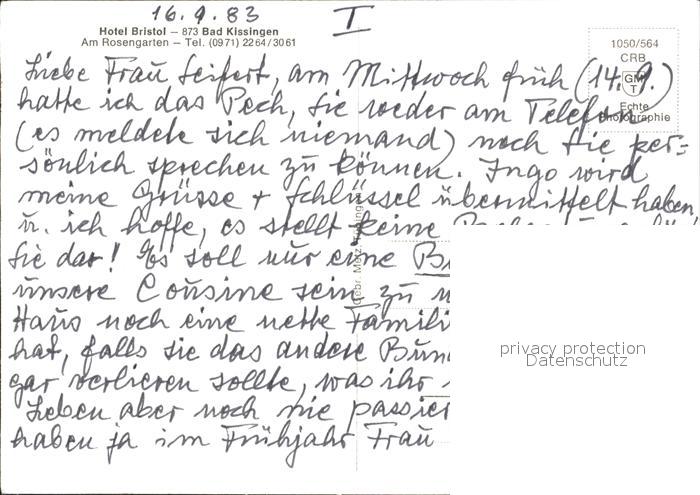 16.9.83
I
Hotel Bristol — 873 Bad Kissingen
Am Rosengarten — Tel. (0971) 2264/3061
1050/564
CRB
GM
T
Echte
Photographie
Liebe Frau Seifert, am Mittwoch früh (14.9.)
hatte ich das Pech, Sie weder am Telefon
(es meldete sich niemand) noch Sie per=
sönlich sprechen zu können. Ingo wird
meine Grüsse + Schlüssel übermittelt haben,
u. ich hoffe, es stellt keine
Sie dar! Es soll nur eine
unsere Cousine sein, zu
Haus noch eine nette Famili
hat, falls sie das andere Bun
gar verlieren sollte, was ihr
Leben aber noch nie passier
haben ja im Frühjahr Frau
Gebr. Metz
privacy protection
Datenschutz